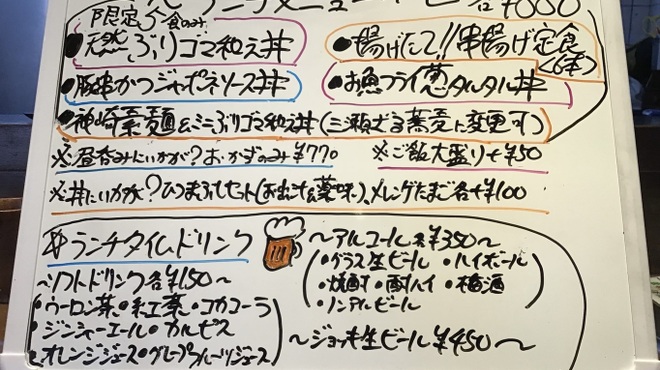 ランチメニュー
限定5食のみ
●天然ぶりゴマ和え丼
●揚げたて!!串揚げ定食
<6本>
●豚串かつジャポネソース丼
●お魚フライ葱タルタル丼
●神崎素麺&ミニぶりゴマ和え丼(三瀬ざる蕎麦に変更可)
※昼呑みにいかが?おかずのみ¥770
※ご飯大盛り+¥50
※丼にいかが?ひつまぶしセット(お出汁&薬味)、メレンゲたまご各+¥100
ランチタイムドリンク
~ソフトドリンク各¥150~
・ウーロン茶・紅茶・コカコーラ
・ジンジャーエール・カルピス
・オレンジジュース・グレープフルーツジュース
~アルコール各¥350~
・グラス生ビール・ハイボール
・焼酎・酎ハイ・梅酒
・ノンアルビール
~ジョッキ生ビール¥450~